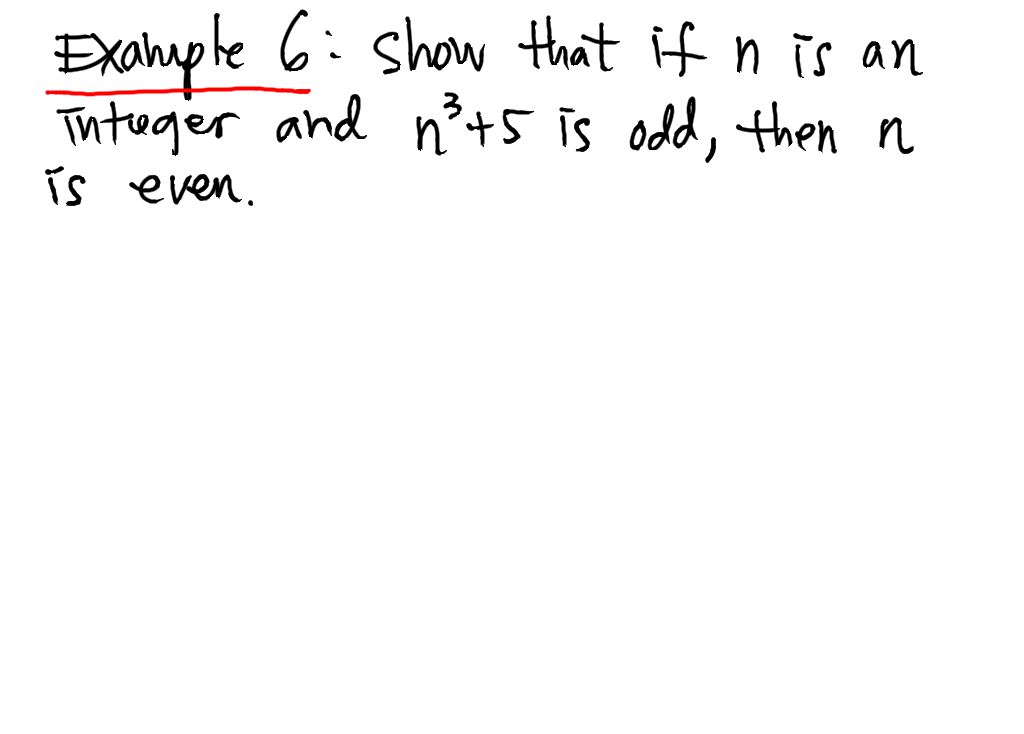 Example 6: Show that if n is an
integer and n³+5 is odd, then n
is even.